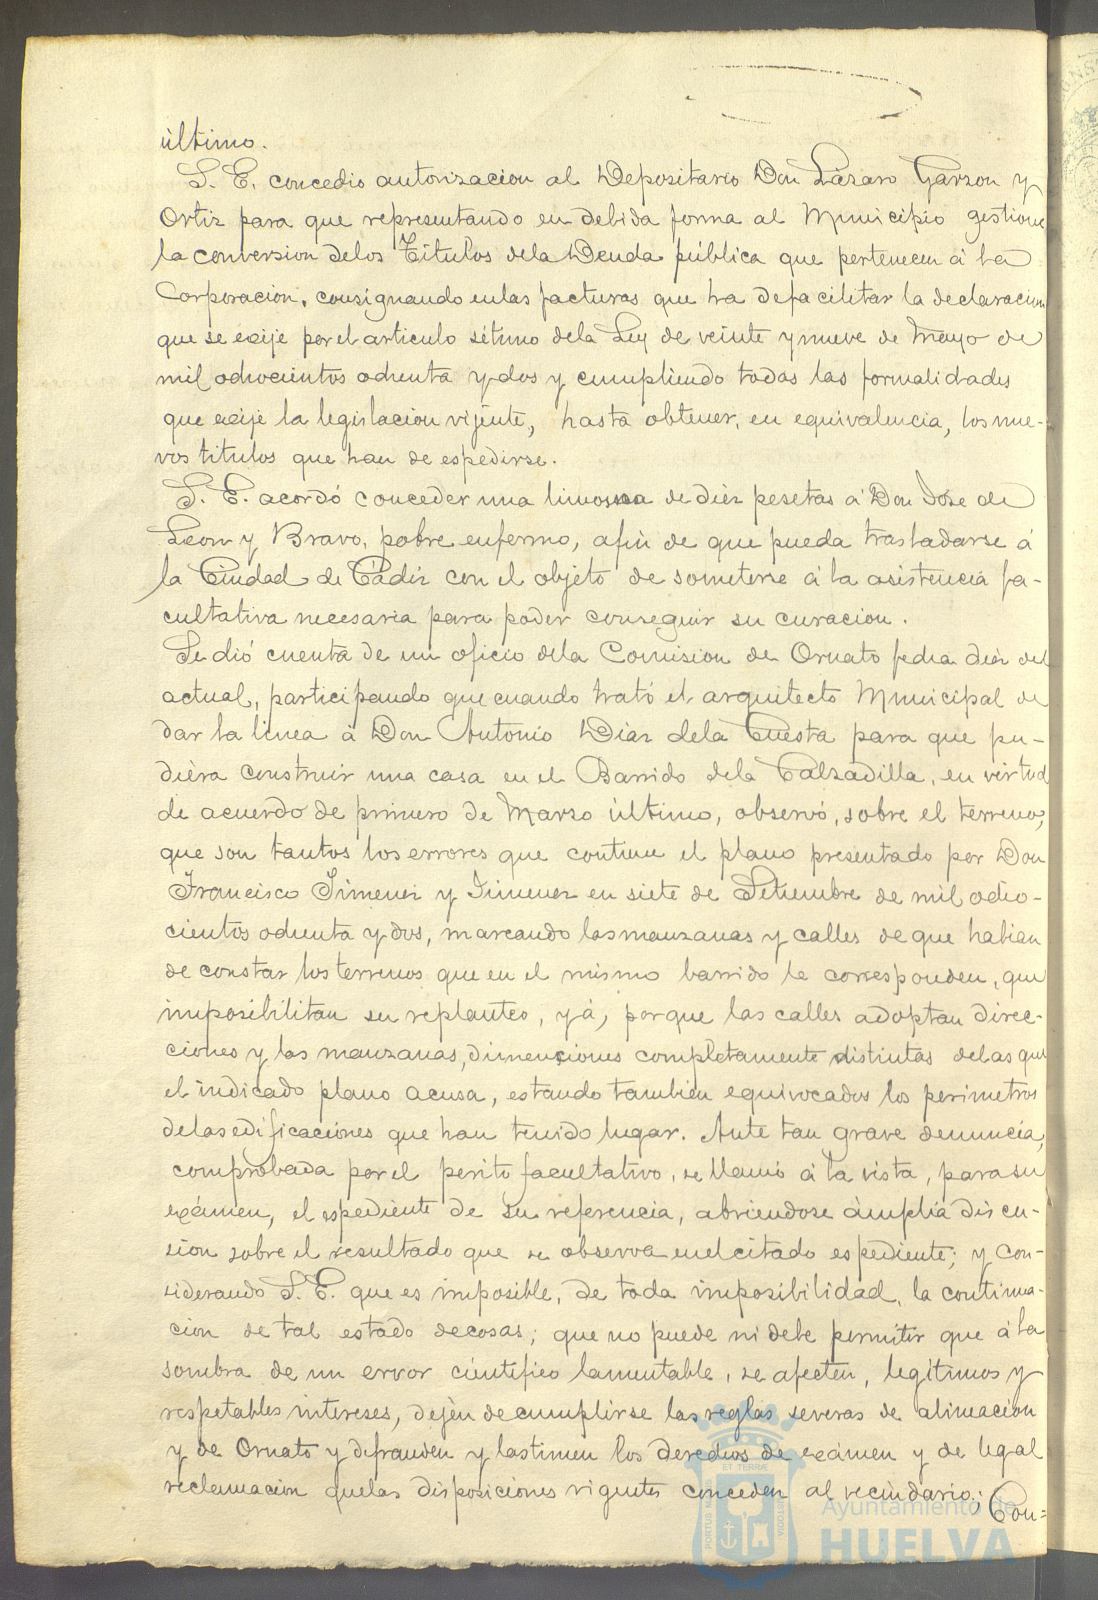 último.
S. E. concedio autorizacion al Depositario Don Lázaro Garzon y
Ortiz para que representando en debida forma al Municipio gestione
la conversion delos Títulos dela Deuda pública que pertenecen á la
Corporacion, consignando enlas facturas que ha defacilitar la declaracion
que se exije por el articulo sétimo dela Ley de veinte y nueve de Mayo de
mil ochocientos ochenta y dos y cumpliendo todas las formalidades
que exije la legislacion vijente, hasta obtener, en equivalencia, los nue-
vos titulos que han de espedirse.
S. E. acordó conceder una limosna de diez pesetas á Don José de
Leon y Bravo, pobre enfermo, afin de que pueda trasladarse á
la Ciudad de Cádiz con el objeto de someterse á la asistencia fa-
cultativa necesaria para poder conseguir su curacion.
Se dió cuenta de un oficio dela Comision de Ornato fecha diez del
actual, participando que cuando trató el arquitecto Municipal de
dar la linea á Don Antonio Diaz dela Cuesta para que pu-
diera construir una casa en el Barrido dela Calzadilla, en virtud
de acuerdo de primero de Marzo último, observó, sobre el terreno,
que son tantos los errores que contiene el plano presentado por Don
Francisco Jimenez y Jimenez en siete de Setiembre de mil ocho-
cientos ochenta y dos, marcando las manzanas y calles de que habian
de constar los terrenos que en el mismo barrido le corresponden, que
imposibilitan su replanteo, yá, porque las calles adoptan direc-
ciones y las manzanas, dimensiones completamente distintas delas que
el indicado plano acusa, estando tambien equivocados los perimetros
delas edificaciones que han tenido lugar. Ante tan grave denuncia,
comprobada por el perito facultativo, se llamó á la vista, para su
exámen, el espediente de su referencia, abriendose ámplia discu-
sion sobre el resultado que se observa enel citado espediente; y con-
siderando S. E. que es imposible, de toda imposibilidad, la continua-
cion de tal estado decosas; que no puede ni debe permitir que á la
sombra de un error científico lamentable, se afecten, legítimos y
respetables intereses, dejen de cumplirse las reglas severas de alineacion
y de Ornato y defrauden y lastimen los derechos de exámen y de legal
reclamacion quelas disposiciones vigentes conceden al vecindario; Con=
Ayuntamiento de
HUELVA